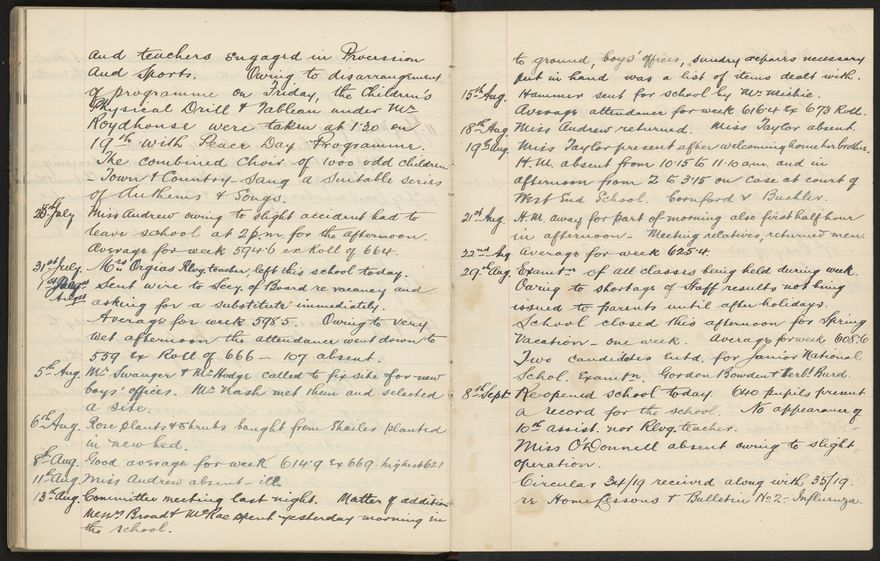 and teachers engaged in Procession
and sports. Owing to disarrangement
of programme on Friday, the Children's
Physical Drill & Tableau under Mr
Roydhouse were taken at 1.30 on
19th with Peace Day Programme.
The combined Choir of 1000 odd children
- Town & Country - sang a suitable series
of Anthems & Songs.
25th July Miss Andrew owing to slight accident had to
leave school at 2 p.m. for the afternoon.
Average for week 594.6 ex Roll of 664.
31st July. Mrs Orgias Relvg. teacher, left this school today.
1st Aug Sent wire to Secy. of Board re vacancy and
asking for a substitute immediately.
Average for week 598.5 Owing to very
wet afternoon the attendance went down to
559 ex Roll of 666 — 107 absent.
5th Aug. Mr Swanger & Mr Hodge called to fix site for new
boys' offices. Mr Nash met them and selected
a site.
6th Aug. Rose plants & shrubs bought from Shailer planted
in new bed.
8th Aug. Good average for week 614.9 ex 669. highest 621
11th Aug. Miss Andrew absent - ill.
13th Aug. Committee meeting last night. Matter of addition
Messrs Broad & McRae spent yesterday morning in
the school.
to ground, boys' offices, sundry repairs necessary
put in hand was a list of items dealt with.
15th Aug. Hammer sent for school by Mr
Average attendance for week 616.4 ex 673 Roll.
18th Aug. Miss Andrew returned. Miss Taylor absent.
19th Aug. Miss Taylor present after welcoming home her brother.
H.M. absent from 10.15 to 11.10 a.m. and in
afternoon from 2 to 3.15 on case at court of
West End School. Cornford v Buchler.
21st Aug. H.M. away for part of morning also first half hour
in afternoon. Meeting relatives, returned men.
22nd Aug Average for week 625.4.
29th Aug. Examtn of all classes being held during week.
Owing to shortage of Staff results not being
issued to parents until after holidays.
School closed this afternoon for Spring
Vacation - one week. Average for week 608.6
Two candidates entd. for Junior National
Schol. Examtn. Gordon Bowden & Herbt. Burd.
8th Sept Re-opened school today. 640 pupils present
a record for the school. No appearance of
10th assist. nor Relvg. teacher.
Miss O'Donnell absent owing to slight
operation.
Circular 34/19 received along with 35/19.
re Home Lessons & Bulletin No 2 - Influenza.